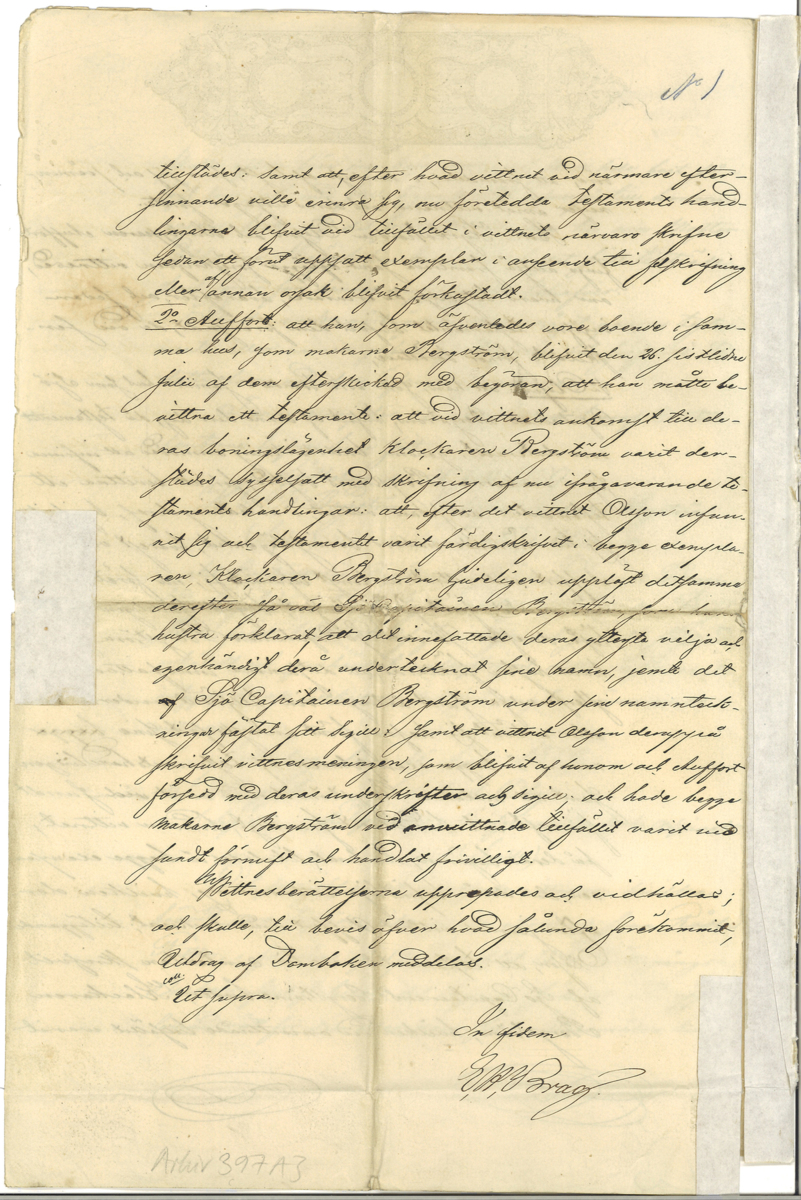 N 1
tillstädes: samt att, efter hvad vittnet vid närmare efter-
sinnande ville erinra sig, nu företedda testaments hand-
lingarna blifvit vid tillfället i vittnets närvaro skrifne
sedan ett förut uppsatt exemplar i anseende till felskrifning
eller af annan orsak blifvit förkastadt.
2o Auffort: att han, som äfvenledes vore boende i sam-
ma hus, som makarne Bergström, blifvit den 26. sistlidne
Julii af dem efterskickad med begäran, att han måtte be-
vittna ett testamente: att vid vittnets ankomst till de-
ras boningslägenhet Klockaren Bergström varit der-
städes sysselsatt med skrifning af nu ifrågavarande te-
staments handlingar: att, efter det vittnet Olsson infun-
nit sig och testamentet varit färdigskrifvet i begge exempla-
ren, Klockaren Bergström ljudeligen uppläst detsamma
derefter så väl Sjö Capitainen Bergström, som hans
hustra förklarat, att det innefattade deras yttersta vilja och
egenhändigt derå undertecknat sine namn, jemte det
Sjö Capitainen Bergström under sine namnteck-
ningar fästat sitt Sigill: samt att vittnet Olsson deruppå
skrifvit vittnesmeningen, som blifvit af honom och Auffort
försedd med deras underskrifter och Sigill; och hade begge
makarne Bergström vid omvittnade tillfället varit vid
sundt förnuft och handlat frivilligt.
Wittnesberättelserna upprepades och vidhållas;
och skulle, till bevis öfver hvad sålunda förekommit,
Utdrag af Domboken meddelas.
coll:
Ut supra.
In fidem
Brag
Arkiv 397A3